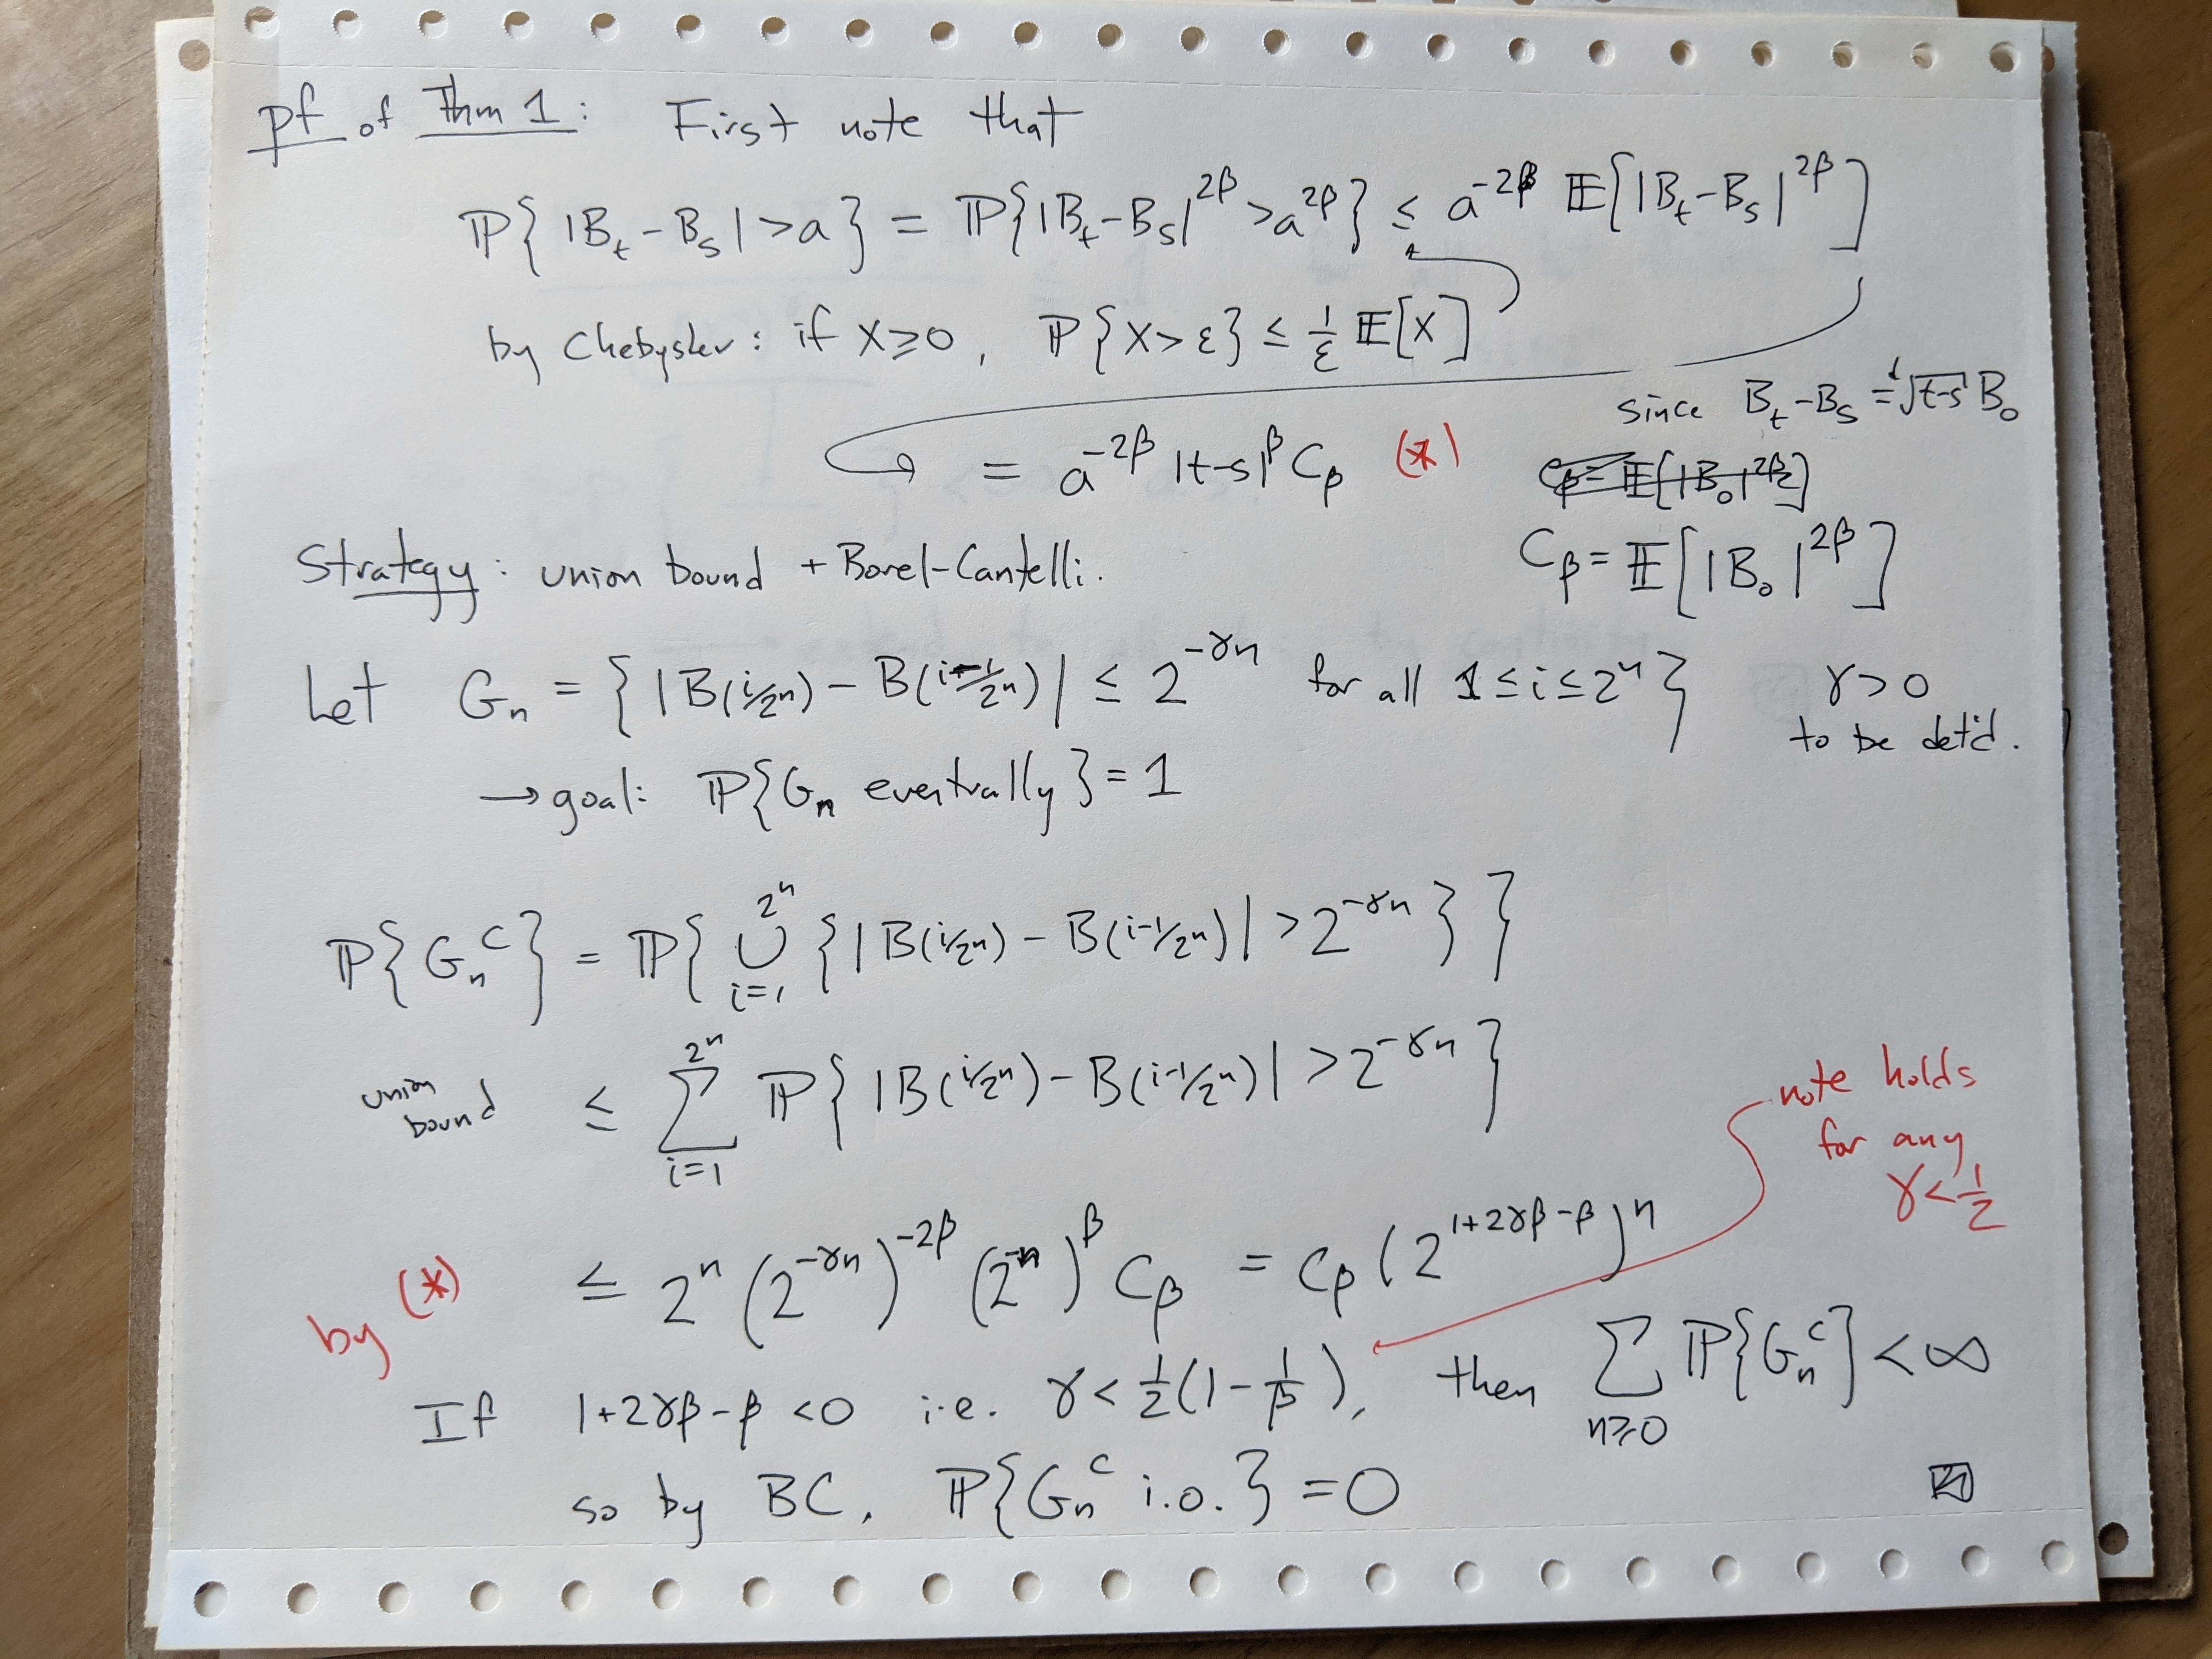 pf of Thm 1: First note that
ℙ{ |B_t - B_s| > a } = ℙ{ |B_t - B_s|^{2β} > a^{2β} } ≤ a^{-2β} 𝔼[ |B_t - B_s|^{2β} ]
by Chebyshev: if X ≥ 0, ℙ{X > ε} ≤ 1/ε 𝔼[X]
since B_t - B_s =^d √(t-s) B_0
= a^{-2β} |t-s|^β C_β (*)
C_β = 𝔼[|B_0|^{2β}]
Strategy: union bound + Borel-Cantelli.
C_β = 𝔼[ |B_0|^{2β} ]
Let G_n = { |B(i/2^n) - B(i-1/2^n)| ≤ 2^{-γn} for all 1 ≤ i ≤ 2^n } γ > 0
to be det'd.
→ goal: ℙ{G_n eventually} = 1
ℙ{G_n^c} = ℙ{ ∪_{i=1}^{2^n} { |B(i/2^n) - B(i-1/2^n)| > 2^{-γn} } }
union bound ≤ ∑_{i=1}^{2^n} ℙ{ |B(i/2^n) - B(i-1/2^n)| > 2^{-γn} }
note holds
for any
γ < 1/2
by (*) ≤ 2^n (2^{-γn})^{-2β} (2^{-n})^β C_β = C_β (2^{1+2γβ-β})^n
If 1+2γβ-β < 0 i.e. γ < 1/2(1 - 1/β), then ∑_{n≥0} ℙ{G_n^c} < ∞
so by BC, ℙ{G_n^c i.o.} = 0